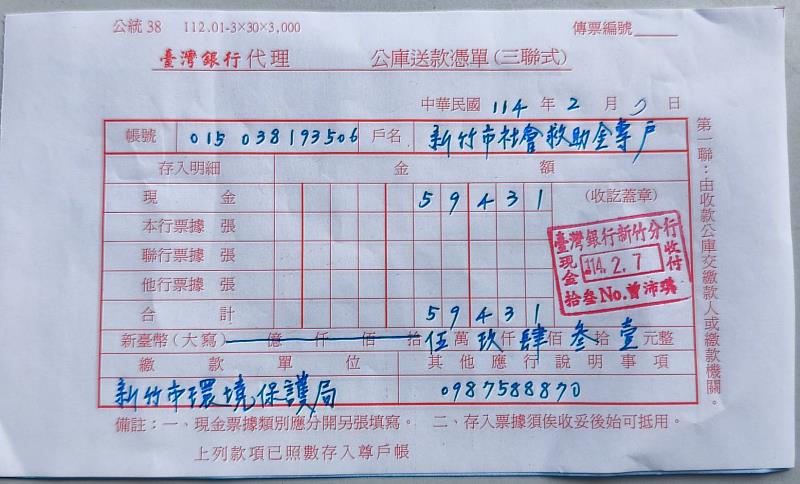 公統38 112.01-3×30×3,000 傳票編號
臺灣銀行代理 公庫送款憑單(三聯式)
中華民國 114 年 2 月 7 日
帳號 015 038193506 戶名 新竹市社會救助金專戶
存入明細 金額
現金 59431 (收訖蓋章)
本行票據 張
聯行票據 張
他行票據 張
合計 59431
新臺幣(大寫) 億仟佰拾伍萬玖仟肆佰叁拾壹元整
繳款單位 其他應行說明事項
新竹市環境保護局 0987588870
備註:一、現金票據類別應分開另張填寫。 二、存入票據須俟收妥後始可抵用。
上列款項已照數存入尊戶帳
第一聯:由收款公庫交繳款人或繳款機關。
臺灣銀行新竹分行
現金 114.2.7 收付
拾叁No.曾沛琪